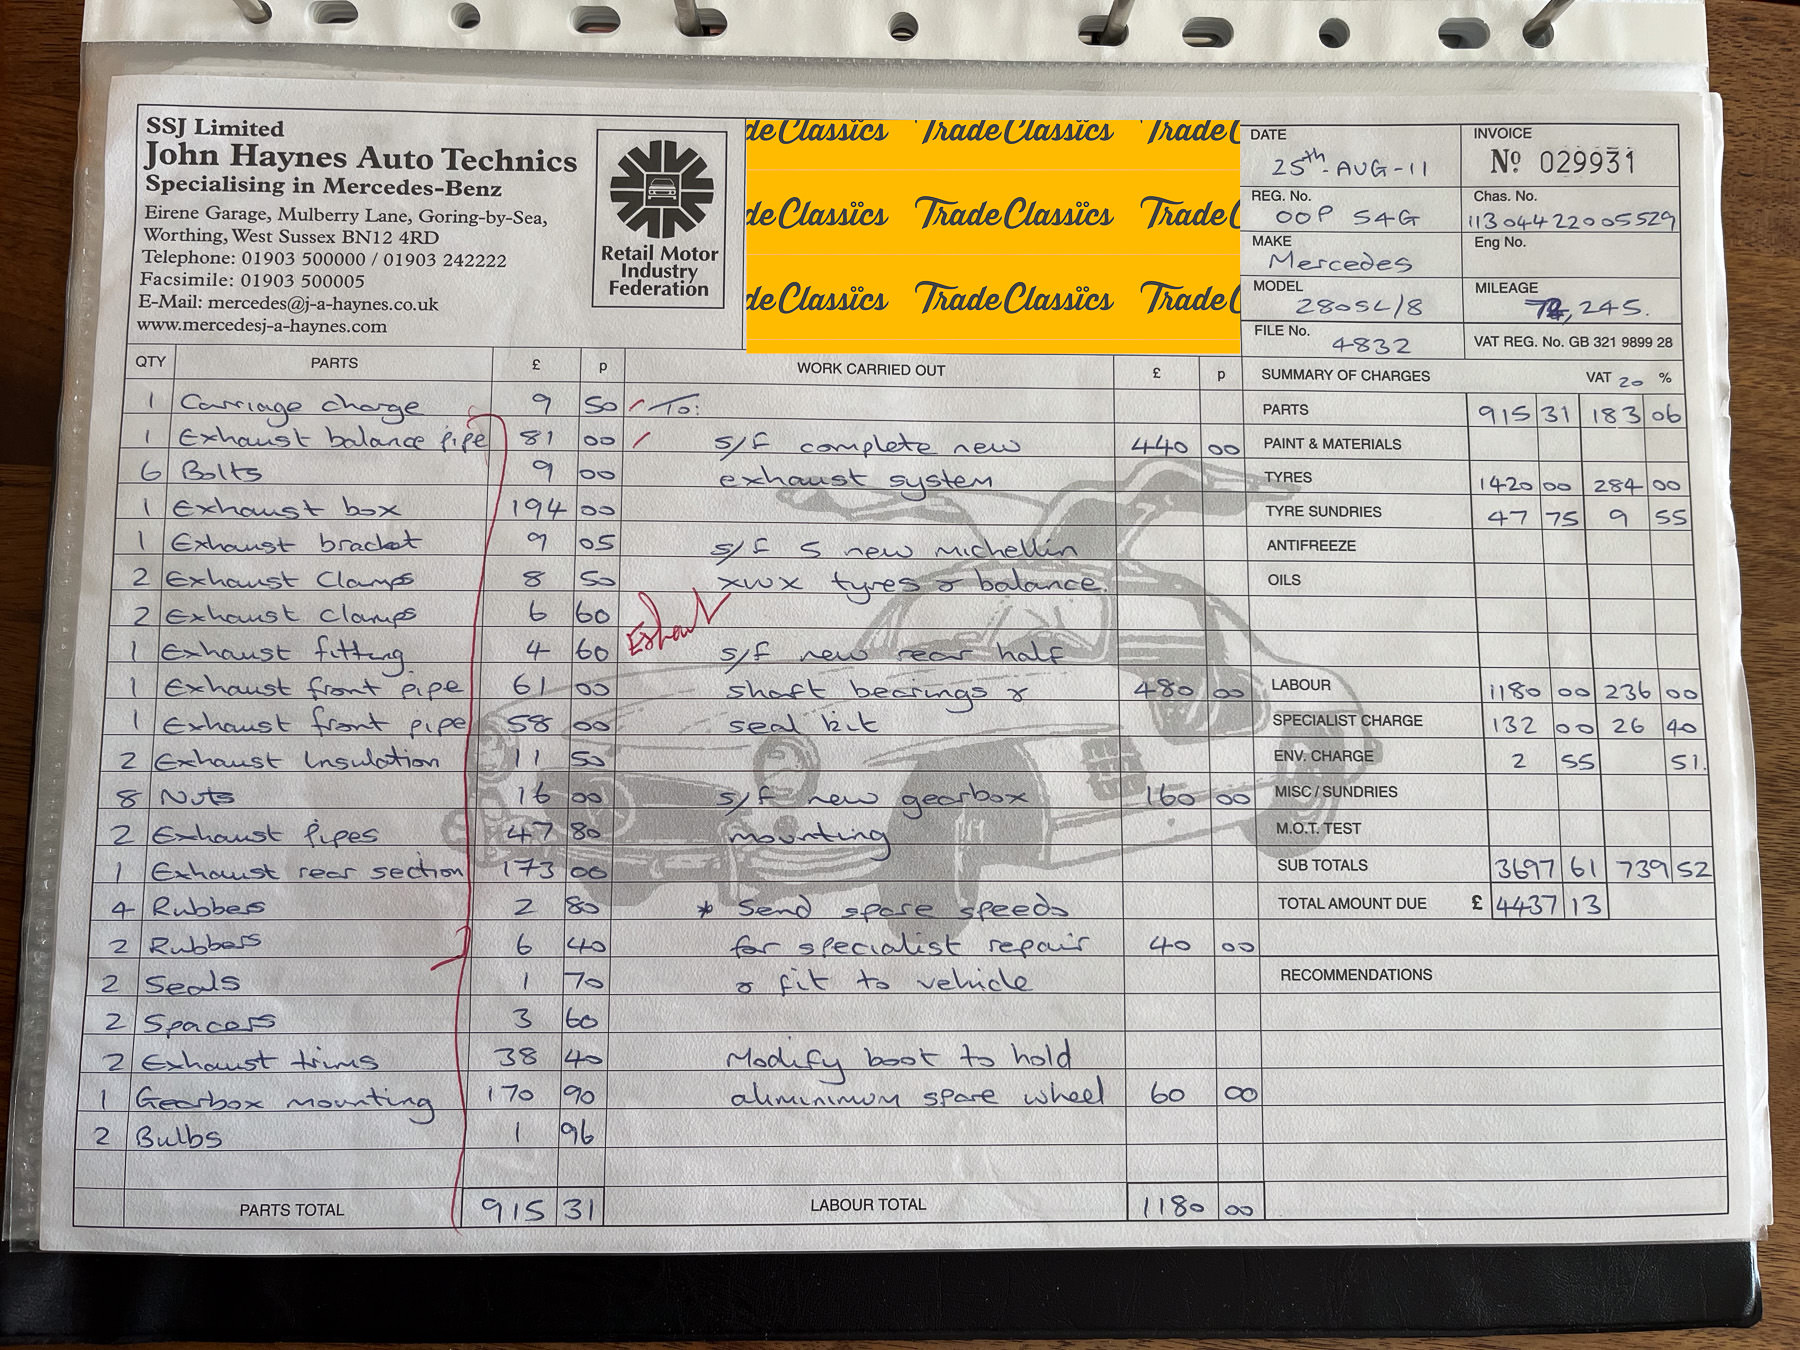 SSJ Limited
John Haynes Auto Technics
Specialising in Mercedes-Benz
Eirene Garage, Mulberry Lane, Goring-by-Sea,
Worthing, West Sussex BN12 4RD
Telephone: 01903 500000 / 01903 242222
Facsimile: 01903 500005
E-Mail: mercedes@j-a-haynes.co.uk
www.mercedesj-a-haynes.com
Retail Motor
Industry
Federation
deClassics TradeClassics TradeC
deClassics TradeClassics TradeC
deClassics TradeClassics TradeC
DATE 25th-AUG-11
INVOICE No 029931
REG. No. OOP 54G
Chas. No. 11304422005529
MAKE Mercedes
Eng No.
MODEL 280SL/8
MILEAGE 72,245.
FILE No. 4832
VAT REG. No. GB 321 9899 28
QTY PARTS £ p
1 Carriage charge 9 50
1 Exhaust balance pipe 81 00
6 Bolts 9 00
1 Exhaust box 194 00
1 Exhaust bracket 9 05
2 Exhaust Clamps 8 50
2 Exhaust Clamps 6 60
1 Exhaust fitting 4 60
1 Exhaust front pipe 61 00
1 Exhaust front pipe 58 00
2 Exhaust Insulation 11 50
8 Nuts 16 00
2 Exhaust Pipes 47 80
1 Exhaust rear section 173 00
4 Rubbers 2 80
2 Rubbers 6 40
2 Seals 1 70
2 Spacers 3 60
2 Exhaust trims 38 40
1 Gearbox mounting 170 90
2 Bulbs 1 96
PARTS TOTAL 915 31
Exhaust
WORK CARRIED OUT £ p
To:
s/f complete new 440 00
exhaust system
s/f 5 new michellin
xwx tyres & balance.
s/f new rear half
shaft bearings & 480 00
seal kit
s/f new gearbox 160 00
mounting
* Send spare speedo
for specialist repair 40 00
& fit to vehicle
Modify boot to hold
aluminimum spare wheel 60 00
LABOUR TOTAL 1180 00
SUMMARY OF CHARGES VAT 20 %
PARTS 915 31 183 06
PAINT & MATERIALS
TYRES 1420 00 284 00
TYRE SUNDRIES 47 75 9 55
ANTIFREEZE
OILS
LABOUR 1180 00 236 00
SPECIALIST CHARGE 132 00 26 40
ENV. CHARGE 2 55 51.
MISC / SUNDRIES
M.O.T. TEST
SUB TOTALS 3697 61 739 52
TOTAL AMOUNT DUE £ 4437 13
RECOMMENDATIONS